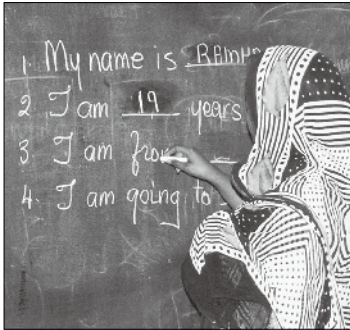 1. My name is
2 I am 19 years
3 I am from
4. I am going to